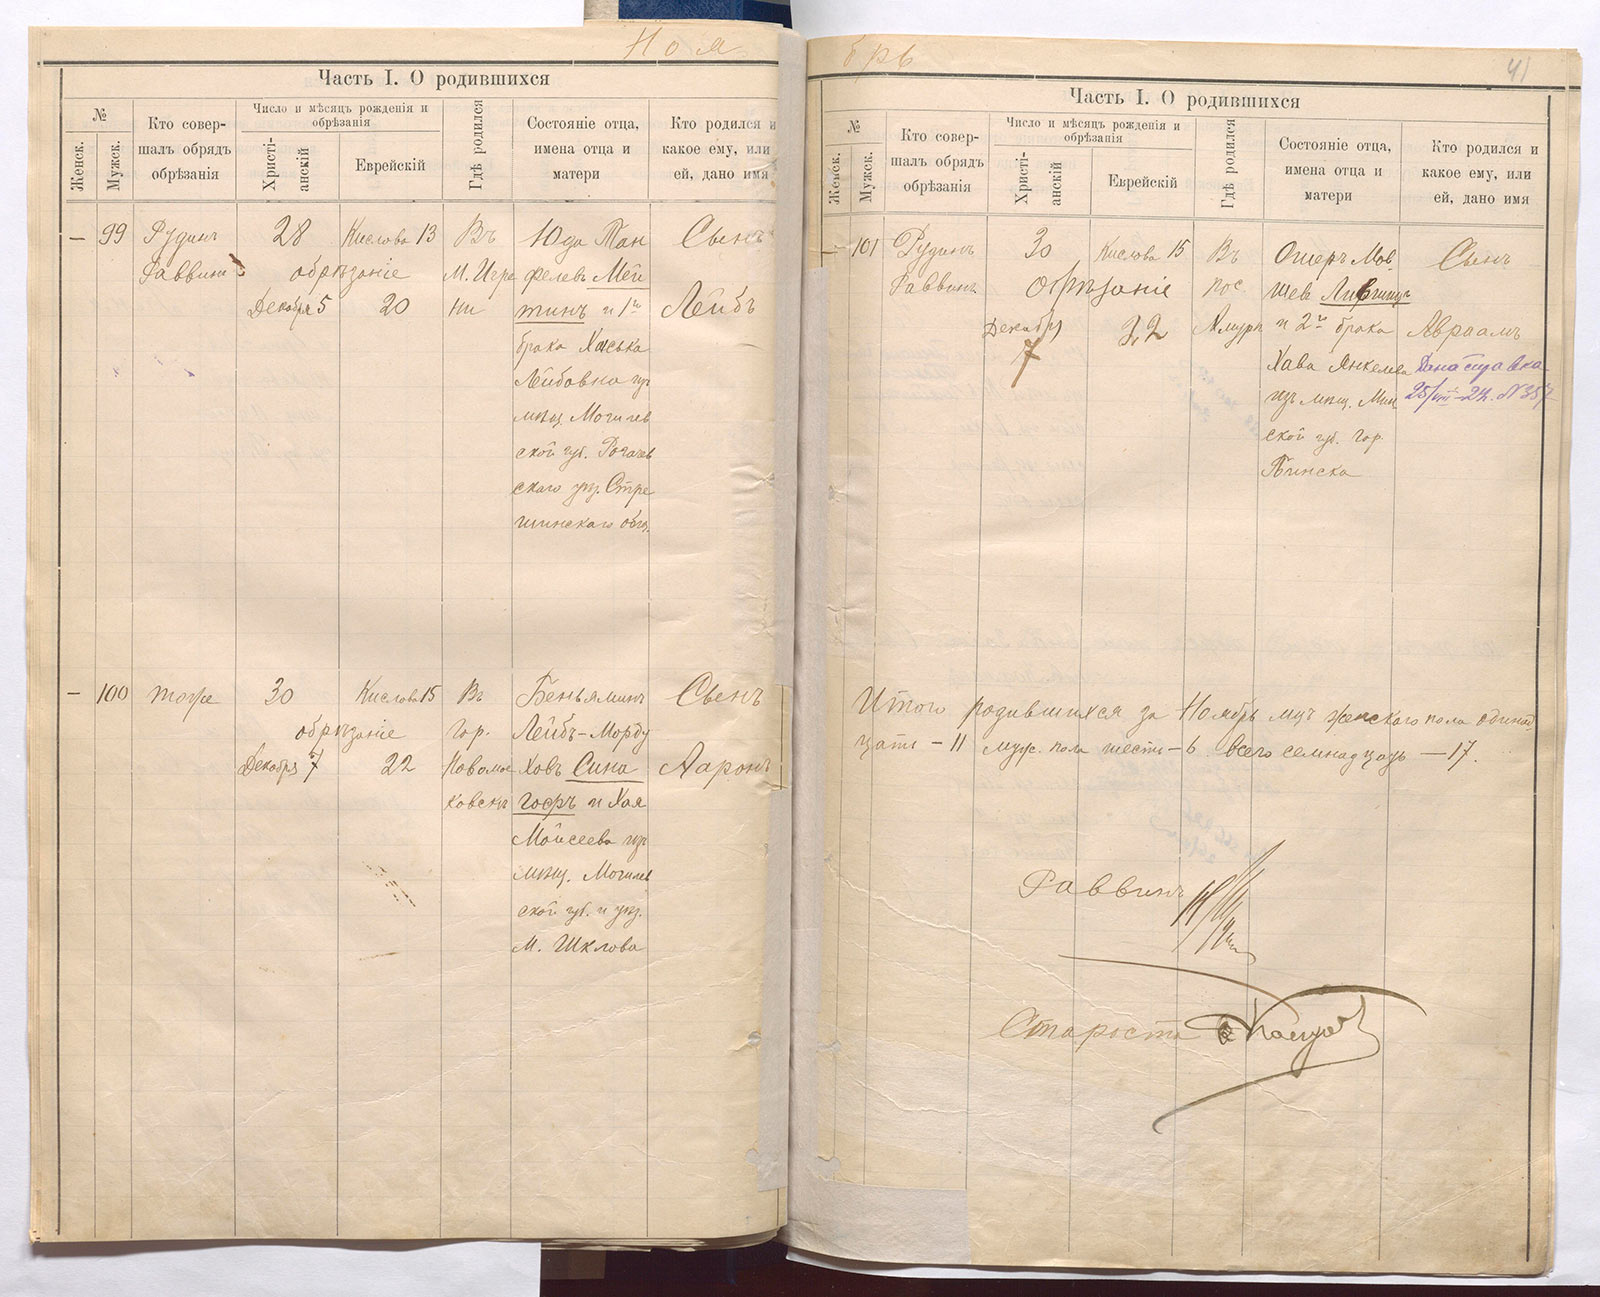 Ноя
Часть I. О родившихся
№
Женск.
Мужск.
Кто совер-
шалъ обрядъ
обрѣзанія
Число и мѣсяцъ рожденія и
обрѣзанія
Христі-
анскій
Еврейскій
Гдѣ родился
Состояніе отца,
имена отца и
матери
Кто родился и
какое ему, или
ей, дано имя
— 99
Рудинъ
Раввинъ
28
обрѣзаніе
Декабря 5
Кислова 13
20
Въ
М. Игре
ни
Юда Тан
фелевъ Мей
тинъ и 1й
брака Хаська
Лейбовна изъ
мѣщ. Могилев
ской губ. Рогачев
скаго уѣз. Стре
шинскаго общ.
Сынъ
Лейбъ
— 100
тоже
30
обрѣзаніе
Декабря 7
Кислова 15
22
Въ
гор.
Новомос
ковскъ
Беньяминъ
Лейбъ-Морду
ховъ Сина
гофъ и Хая
Мойсеева изъ
мѣщ. Могилев
ской губ. и уѣз.
М. Шклова
Сынъ
Ааронъ
брь
41
Часть I. О родившихся
№
Женск.
Мужск.
Кто совер-
шалъ обрядъ
обрѣзанія
Число и мѣсяцъ рожденія и
обрѣзанія
Христі-
анскій
Еврейскій
Гдѣ родился
Состояніе отца,
имена отца и
матери
Кто родился и
какое ему, или
ей, дано имя
— 101
Рудинъ
Раввинъ
30
обрѣзаніе
Декабря
7
Кислова 15
22
Въ
пос.
Амуръ
Ошеръ Мов
шев Лифшицъ
и 2й брака
Хава Янкелева
изъ мѣщ. Мин
ской губ. гор.
Пинска
Сынъ
Авраамъ
Дана справка
25/VIII-24. N 357
Итого родившихся за Ноябрь мцъ женскаго пола одинад
цать — 11 муж. пола шесть — 6 всего семнадцать — 17.
Раввинъ
Староста